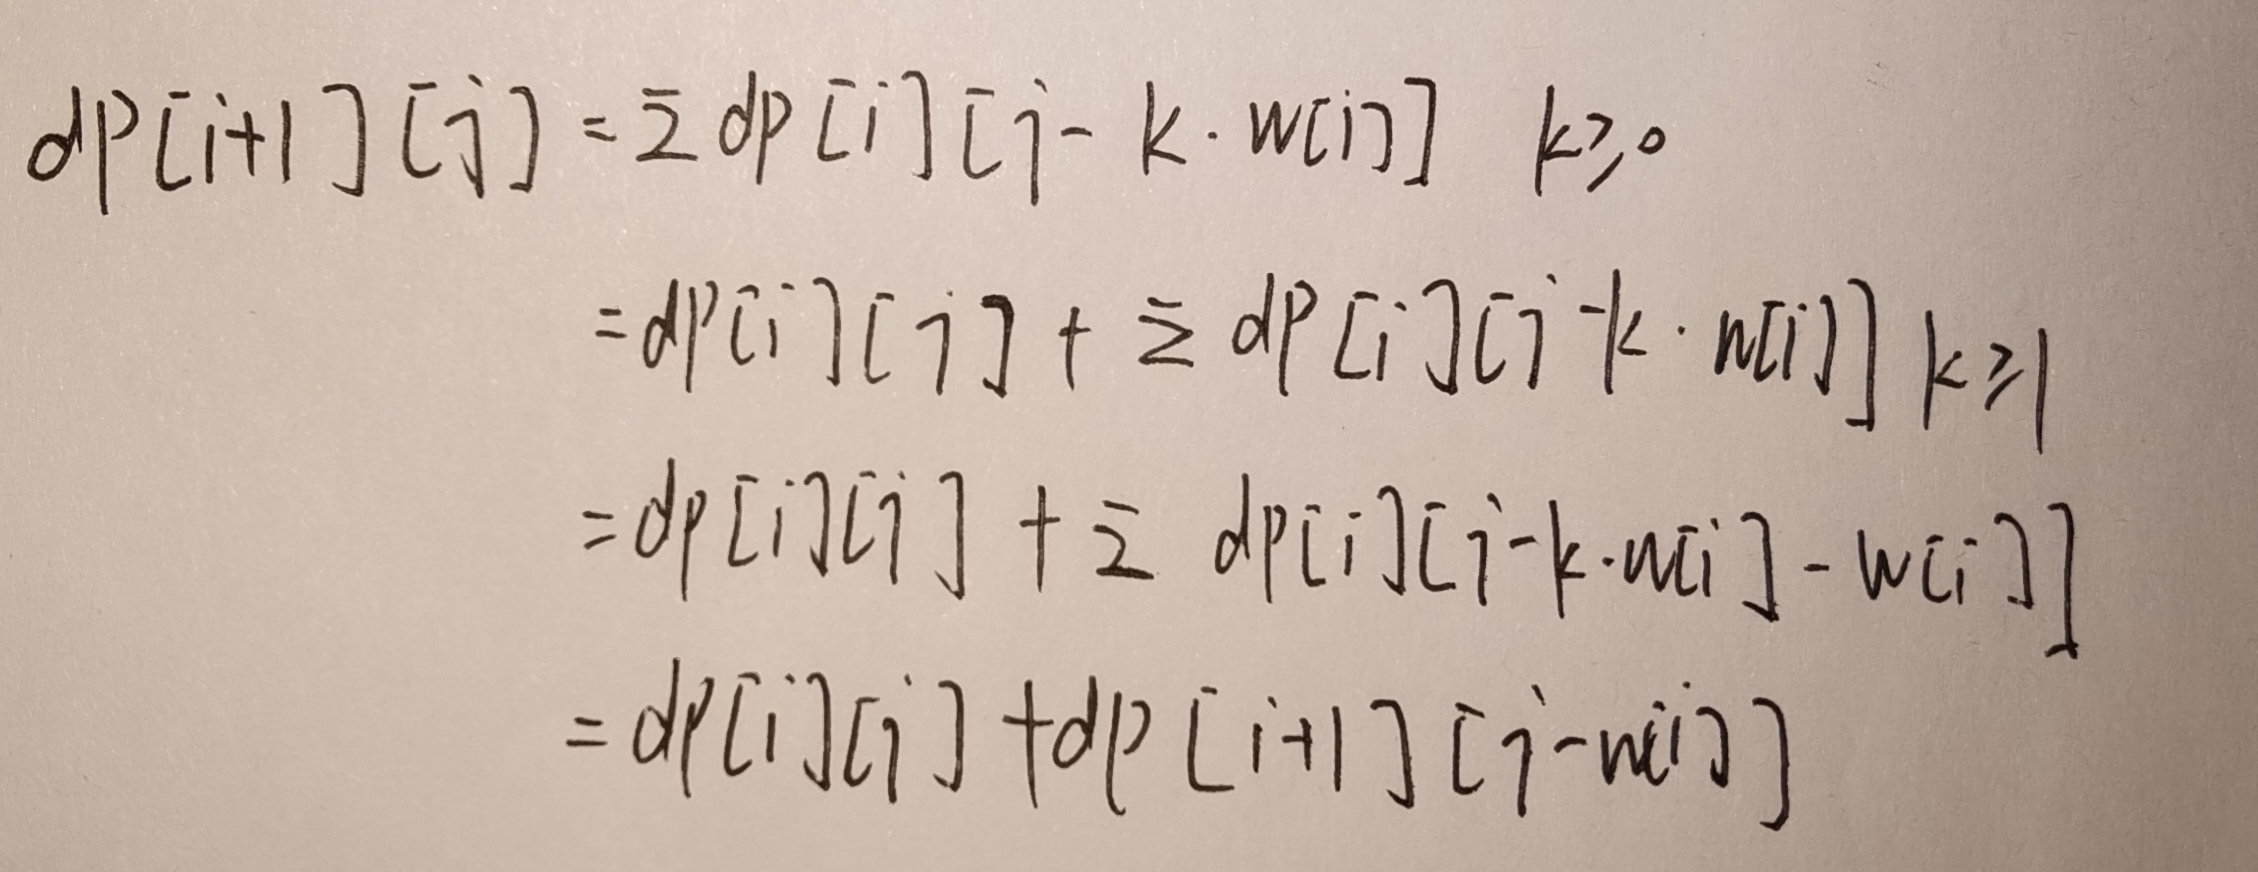 dp[i+1][j] = Σ dp[i][j - k · w[i]] k≥0
= dp[i][j] + Σ dp[i][j - k · w[i]] k≥1
= dp[i][j] + Σ dp[i][j - k · w[i] - w[i]]
= dp[i][j] + dp[i+1][j - w[i]]